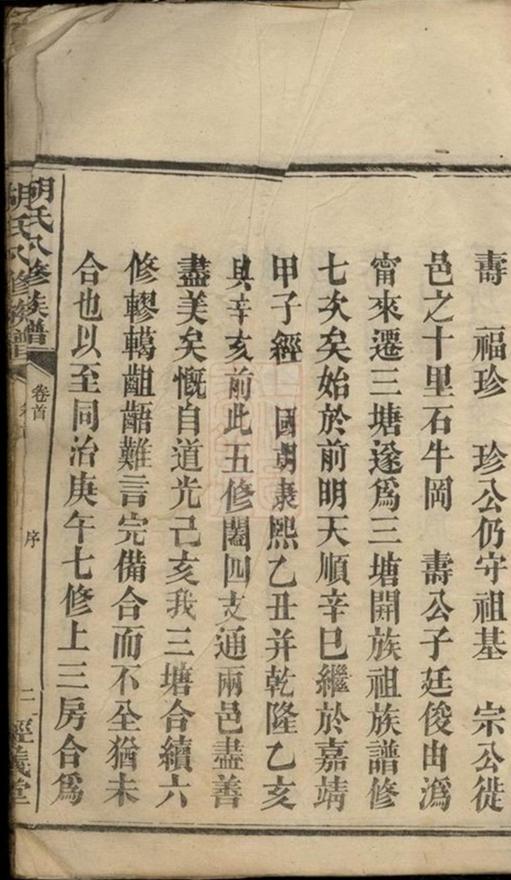 壽 福珍 珍公仍守祖基 宗公徙
邑之十里石牛岡 壽公子廷俊由溈
甯來遷三塘遂爲三塘開族祖族譜修
七次矣始於前明天順辛巳繼於嘉靖
甲子經 國朝康熙乙丑并乾隆乙亥
與辛亥前此五修闔四支通兩邑盡善
盡美矣慨自道光己亥我三塘合續六
修轇轕齟齬難言完備合而不全猶未
合也以至同治庚午七修上三房合爲
胡氏八修族譜
卷首
序
二
經義堂